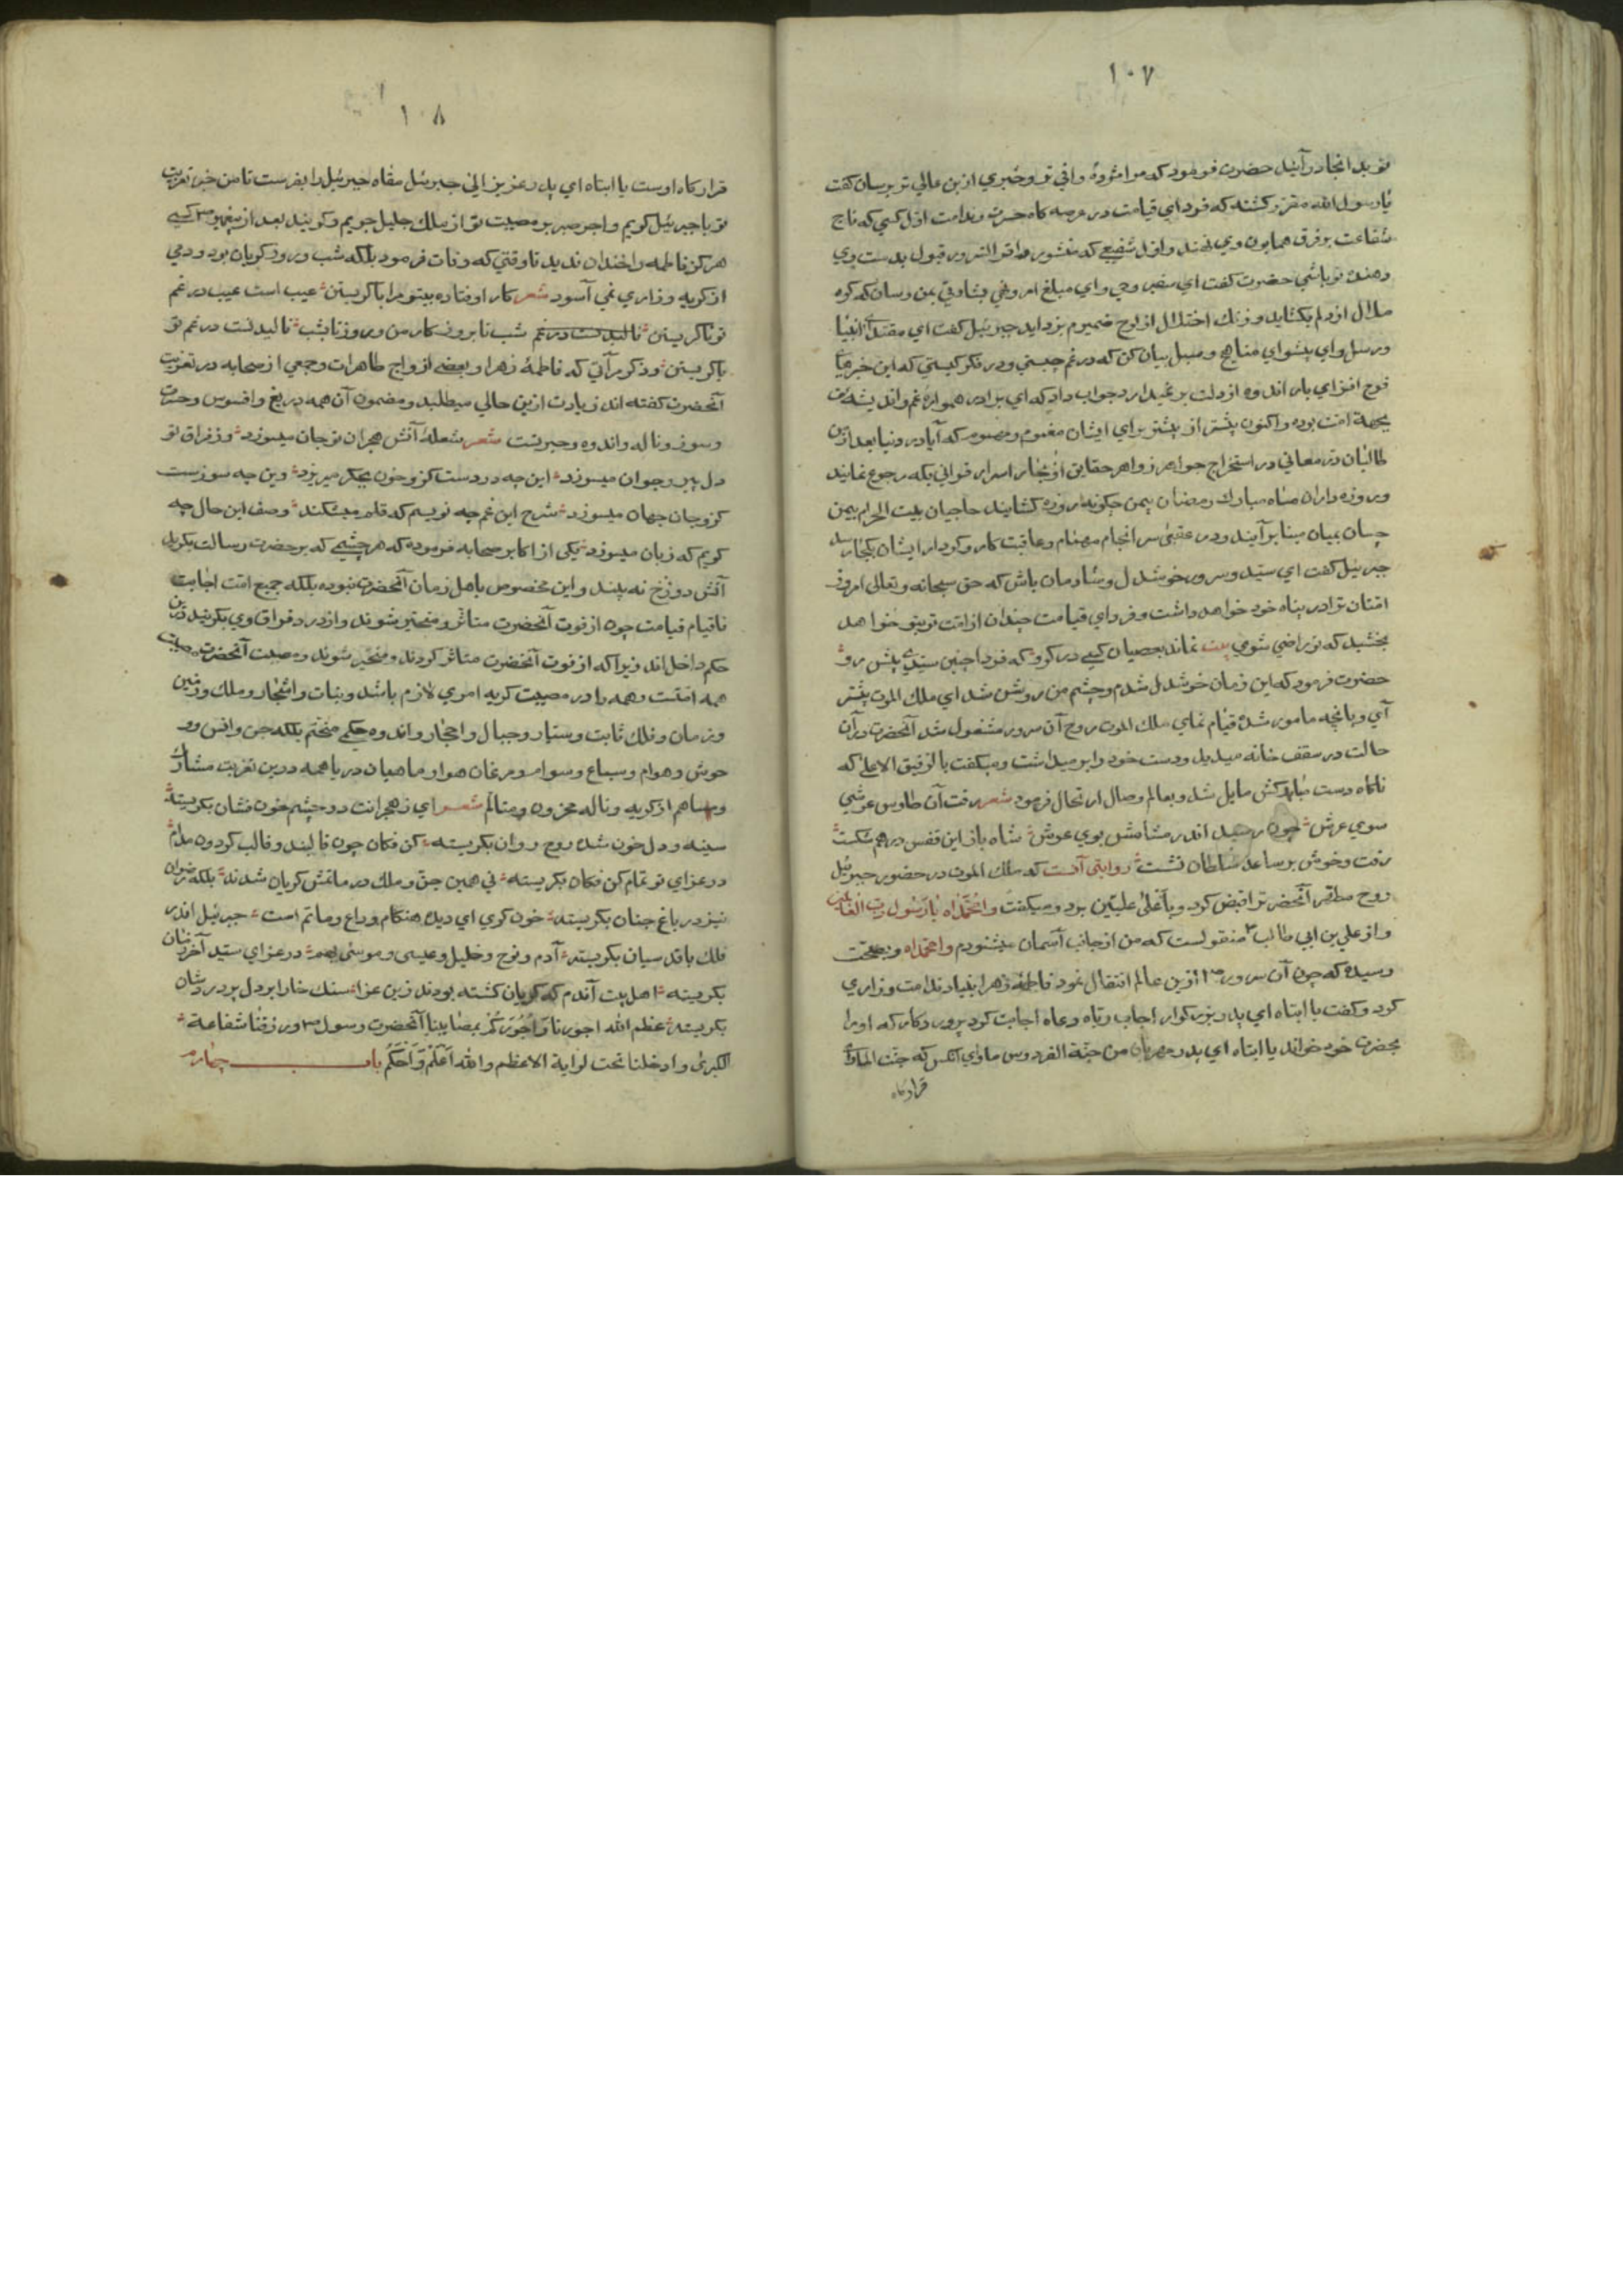 ١٠٧
تو بدانجا در آیند حضرت فرمود که مرا مژدهٔ وافی تر و خبری ازین عالی تر برسان گفت
یا رسول الله مقرر کشته که فردای قیامت در عرصه کاه حسرت و ندامت اول کسی که تاج
شفاعت بر فرق همایون وی نهند و اول شفیعی که منشور وافر السرور قبول بدست وی
دهند تو باشی حضرت کفت ای سفیر وحی و ای مبلغ امر و نهی بشارتی بمن رسان که کره
ملال از دلم بکشاید و زنك اختلال از لوح ضمیرم بزداید جبرئیل کفت ای مقتدای انبیا
و رسل و ای پیشوای مناهج و سبل بیان کن که در غم چیستی و در فکر کیستی که این خبرهای
فرح افزای بار اندوه از دلت بر نمیدارد جواب داد که ای برادر همواره غم و اندیشه من
بجهة امت بوده و اکنون بیشتر از پیشتر برای ایشان مغموم و مهموم که آیا در دنیا بعد از من
طالبان در معانی در استخراج جواهر زواهر حقایق از بحار اسرار قرانی بکه رجوع نمایند
و روزه داران ماه مبارك رمضان بیمن چکونه روزه کشایند حاجیان بیت الحرام بیمن
چسان بمیان مینا بر آیند و در عقبی سر انجام مهام و عاقبت کار و کردار ایشان بکجا رسد
جبرئیل کفت ای سید و سرور خوشدل و شادمان باش که حق سبحانه و تعالی امروز
امتان ترا در پناه خود خواهد داشت و فردای قیامت چندان از امت تو بتو خواهد
بخشید که تو راضی شوی بیت نماند بعصیان کسی در کرو که فردا چنین سیدی پیش رو
حضرت فرمود که این زمان خوشدل شدم و چشم من روشن شد ای ملك الموت پیشتر
آی و بانچه مامور شدهٔ قیام نمای ملك الموت بروح آن سرور مشغول شد آنحضرت در آن
حالت در سقف خانه میدید و دست خود را بر میداشت و میکفت بالرفیق الاعلی که
ناکاه دست مبارکش مایل شد و بعالم وصال ارتحال فرمود شعر رفت آن طاوس عرشی
سوی عرش چون رسید اندر مشامش بوی عرش شاه باز این قفس در هم شکست
رفت و خوش بر ساعد سلطان نشست روایتی آنست که ملك الموت در حضور جبرئیل
روح مطهر آنحضرترا قبض کرد و باعلی علیین برد و میکفت وا محمداه یا رسول رب العالمین
و از علی بن ابی طالب منقولست که من از جانب آسمان میشنودم وا محمداه و بصحت
رسیده که چون آن سرور ازین عالم انتقال نمود فاطمهٔ زهرا بنیاد ندامت و زاری
کرد و کفت یا ابتاه ای پدر بزرکوار اجاب رباه دعاه اجابت کرد پروردکار که او را
بحضرت خود خواند یا ابتاه ای پدر مهربان من جنة الفردوس ماواه ای انکس که جنت الماوی
قرارکاه
١٠٨
قرارکاه اوست یا ابتاه ای پدر عزیز الی جبرئیل منعاه جبرئیل را بفرست تا من خبر تعزیت
تو با جبرئیل کویم و اجر صبر بر مصیبت تو از ملك جلیل جویم و کویند بعد از پیغمبر کسی
هرکز فاطمه را خندان ندید تا وقتی که وفات فرمود بلکه شب و روز کریان بود و دمی
از کریه و زاری نمی آسود شعر کار اوفتاده بیتو مرا با کریستن عیب است عیب در غم
تو نا کریستن نالیدنست در غم شب تا بروز کار من و روز تا بشب نالیدنست در غم تو
با کریستن و ذکر مرآتی که فاطمهٔ زهرا و بعضی ازواج طاهرات و جمعی از صحابه در تعزیت
آنحضرت کفته اند زیادت ازین حالی میطلبد و مضمون آن همه دریغ و افسوس و حسرت
و سوز و ناله و اندوه و حیرتست شعر شعلهٔ آتش هجران تو جان میسوزد وز فراق تو
دل پیر و جوان میسوزد این چه دردست کزو خون بجکر میریزد وین چه سوزست
کزو جان جهان میسوزد شرح این غم چه نویسم که قلم میشکند وصف این حال چه
کویم که زبان میسوزد یکی از اکابر صحابه فرموده که هر چشمی که بر حضرت رسالت بکرید
آتش دوزخ نه بیند و این مخصوص باهل زمان آنحضرت نبوده بلکه جمیع امت اجابت
تا قیام قیامت چون از فوت آنحضرت متاثر و متحیر شوند و از درد فراق وی بکریند درین
حکم داخل اند زیرا که از فوت آنحضرت متاثر کردند و متحیر شوند و مصیبت آنحضرت مصیبت
همه امتست و همه را در مصیبت کریه امری لازم باشد و نبات و اشجار و ملك و زمین
و زمان و فلك ثابت و سیار و جبال و احجار و اندوه حکمی متحتم بلکه جن و انس و و
حوش و هوام و سباع و سوام و مرغان هوا و ماهیان دریا همه درین تعزیت مشارك
و مساهم از کریه و ناله محزون و متالم شعر ای ز هجرانت دو چشم خون فشان بکریسته
سینه و دل خون شده روح روان بکریسته کن فکان چون قالبند و قالب کردون مدام
در عزای تو تمام کن فکان بکریسته نی همین جن و ملك در ماتمش کریان شدند بلکه رضوان
نیز در باغ جنان بکریسته خون کری ای دیده هنکام وداع و ماتم است جبرئیل اندر
فلك با قدسیان بکریسته آدم و نوح و خلیل و عیسی و موسی همه در عزای سید آخر زمان
بکریسته اهل بیت آندم که کریان کشته بودند زین عزا سنك خارا بر دل پر دردشان
بکریسته عظم الله اجورنا و اجورکم بمصابینا آنحضرت رسول و رزقنا شفاعة
الکبری و ادخلنا تحت لوایة الاعظم والله اعلم و احکم باب چهارم